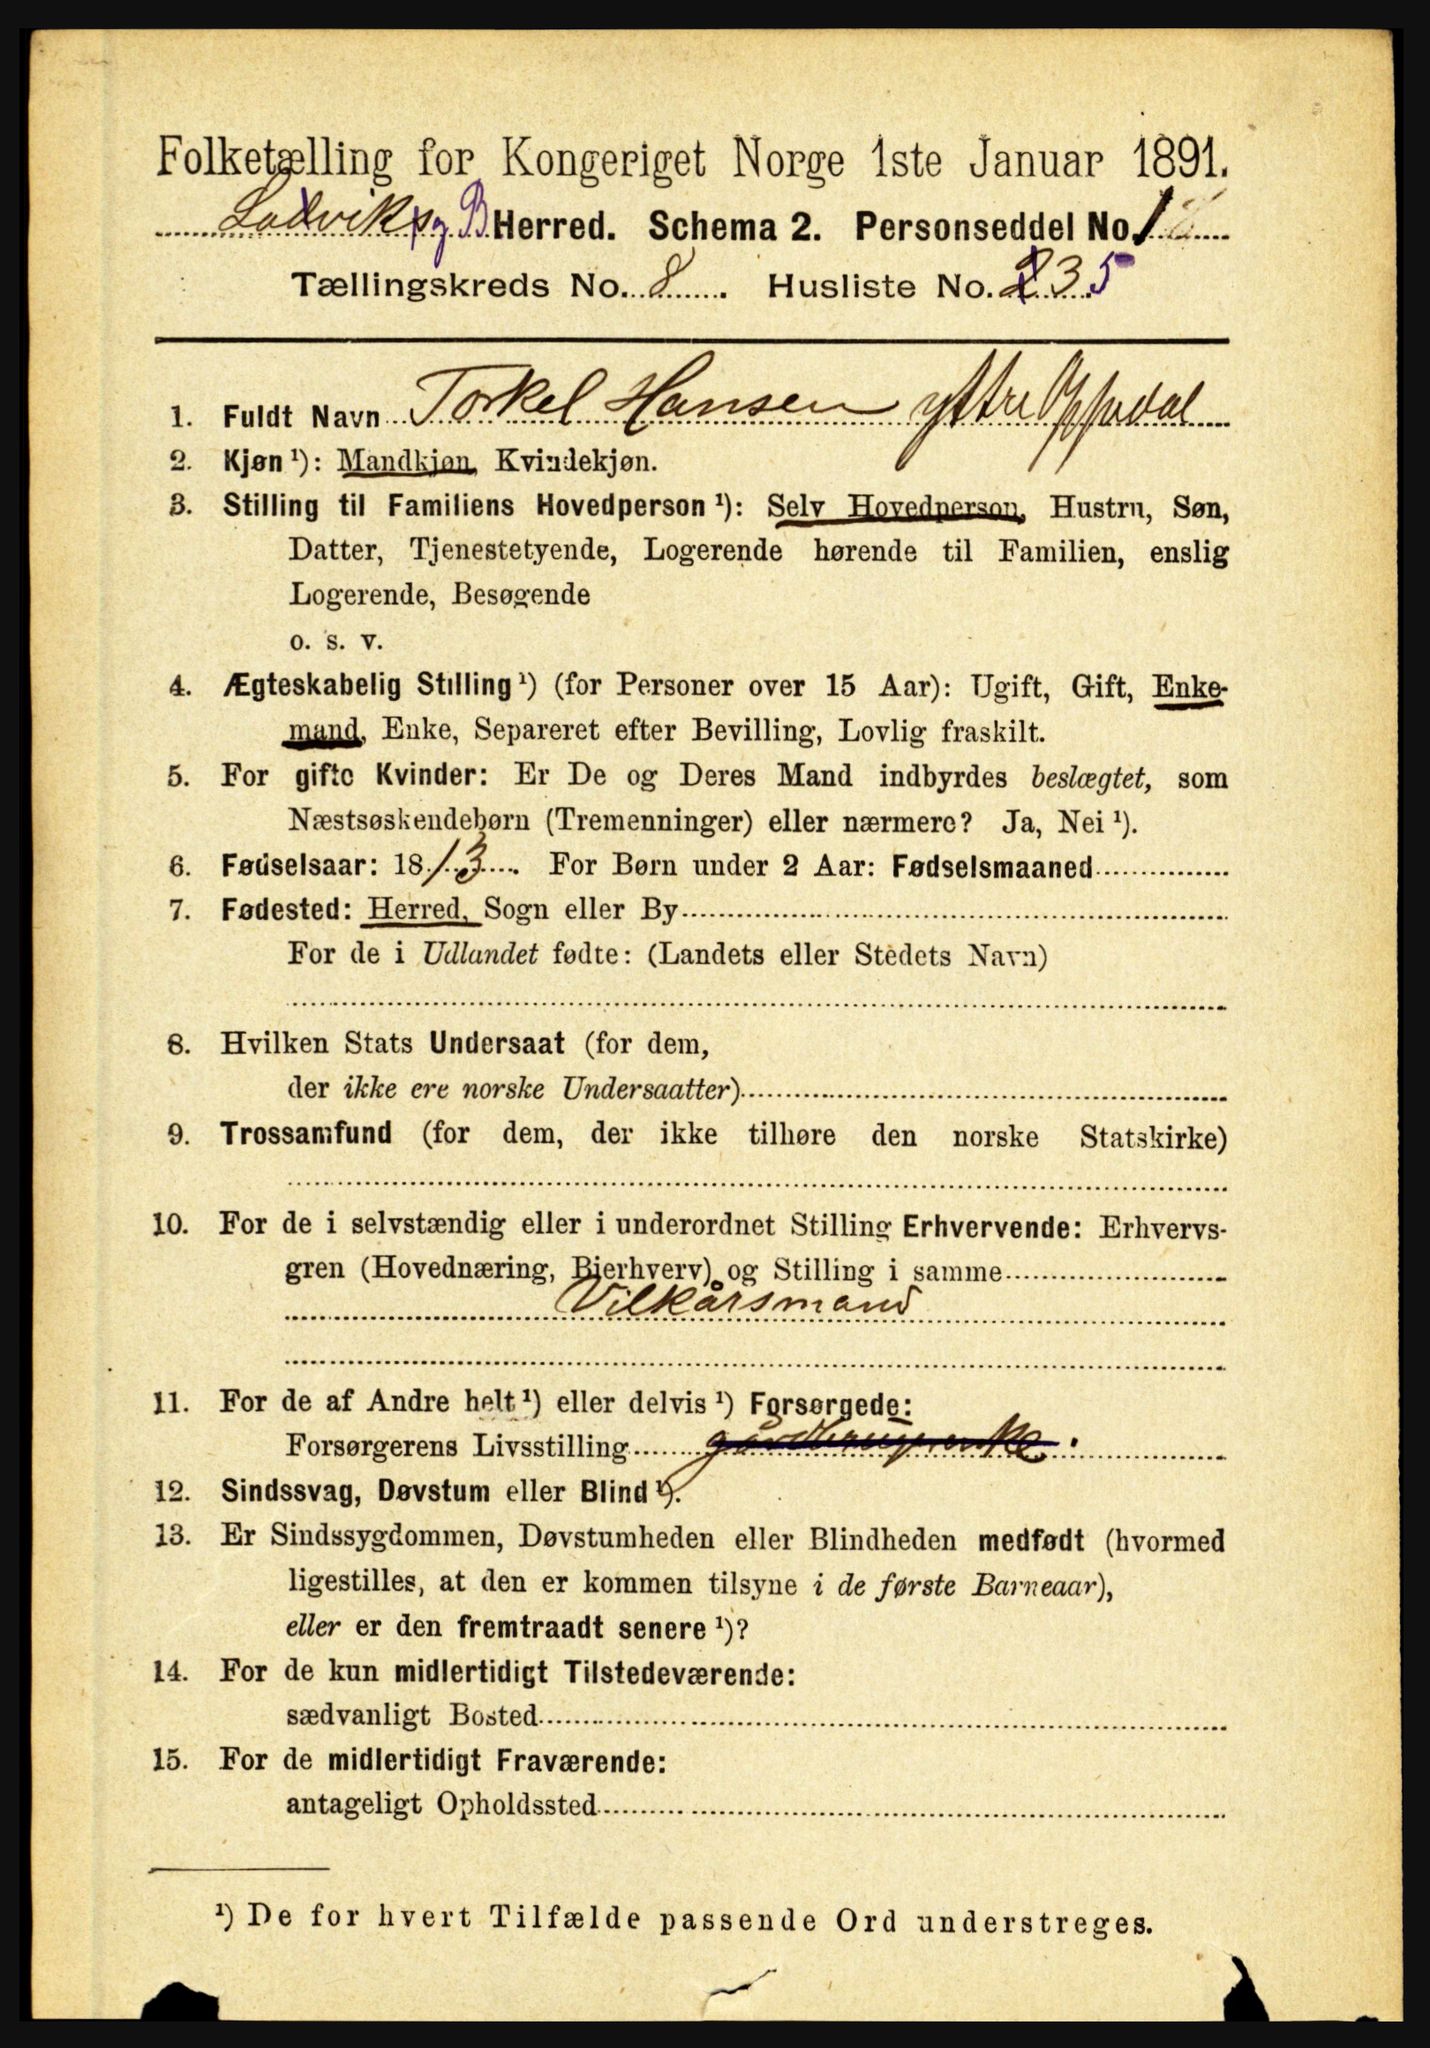 Folketælling for Kongeriget Norge 1ste Januar 1891.
Ladvik og B. Herred. Schema 2. Personseddel No. 1
Tællingskreds No. 8 . Husliste No. 235
1. Fuldt Navn Torkel Hansen yttre Oppedal
2. Kjøn ¹): Mandkjøn, Kvindekjøn.
3. Stilling til Familiens Hovedperson ¹): Selv Hovedperson, Hustru, Søn,
Datter, Tjenestetyende, Logerende hørende til Familien, enslig
Logerende, Besøgende
o. s. v.
4. Ægteskabelig Stilling ¹) (for Personer over 15 Aar): Ugift, Gift, Enke-
mand, Enke, Separeret efter Bevilling, Lovlig fraskilt.
5. For gifte Kvinder: Er De og Deres Mand indbyrdes beslægtet, som
Næstsøskendebørn (Tremenninger) eller nærmere? Ja, Nei ¹).
6. Fødselsaar: 1813. For Børn under 2 Aar: Fødselsmaaned
7. Fødested: Herred, Sogn eller By
For de i Udlandet fødte: (Landets eller Stedets Navn)
8. Hvilken Stats Undersaat (for dem,
der ikke ere norske Undersaatter)
9. Trossamfund (for dem, der ikke tilhøre den norske Statskirke)
10. For de i selvstændig eller i underordnet Stilling Erhvervende: Erhvervs-
gren (Hovednæring, Bierhverv) og Stilling i samme
Vilkårsmand
11. For de af Andre helt ¹) eller delvis ¹) Forsørgede:
Forsørgerens Livsstilling
12. Sindssvag, Døvstum eller Blind ¹).
13. Er Sindssygdommen, Døvstumheden eller Blindheden medfødt (hvormed
ligestilles, at den er kommen tilsyne i de første Barneaar),
eller er den fremtraadt senere ¹)?
14. For de kun midlertidigt Tilstedeværende:
sædvanligt Bosted
15. For de midlertidigt Fraværende:
antageligt Opholdssted
¹) De for hvert Tilfælde passende Ord understreges.